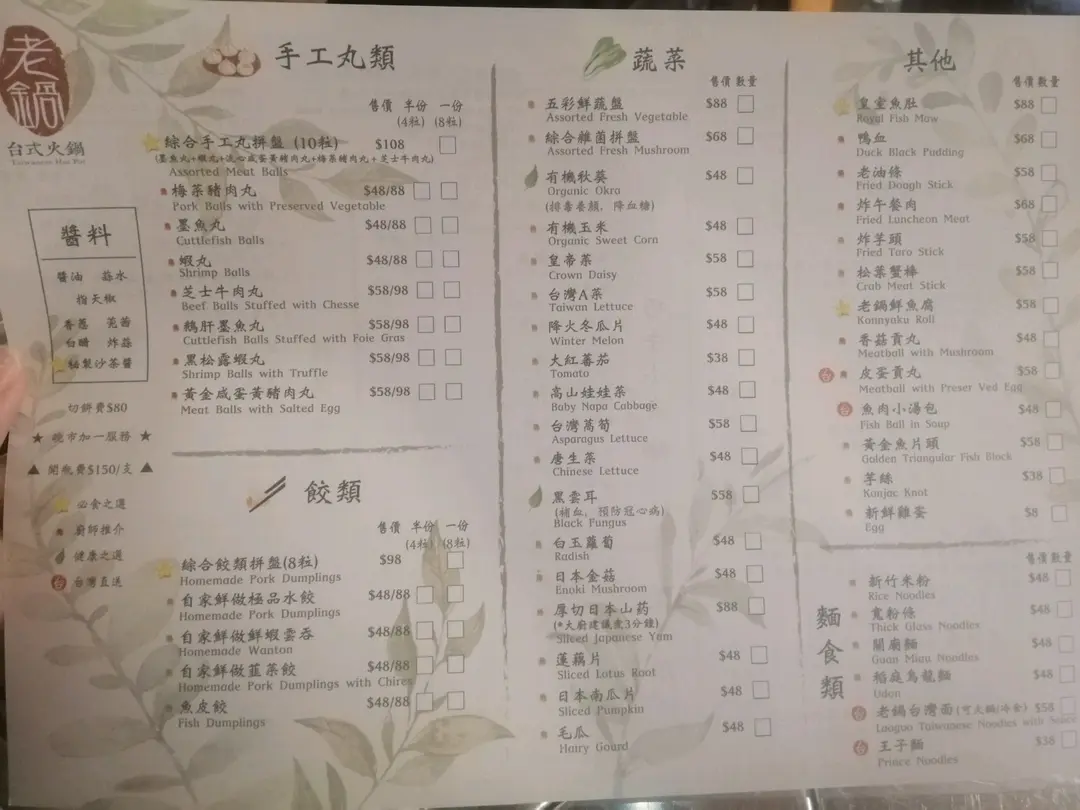 老鍋
台式火鍋
Taiwanese Hot Pot
醬料
醬油 蒜水
指天椒
香蔥 芫茜
白醋 炸蒜
秘製沙茶醬
切餅費$80
★ 晚市加一服務 ★
▲ 開瓶費$150/支 ▲
必食之選
廚師推介
健康之選
台 台灣直送
手工丸類
售價 半份 一份
(4粒) (8粒)
綜合手工丸拼盤 (10粒) $108
(墨魚丸+蝦丸+流心咸蛋黃豬肉丸+梅菜豬肉丸+芝士牛肉丸)
Assorted Meat Balls
梅菜豬肉丸 $48/88
Pork Balls with Preserved Vegetable
墨魚丸 $48/88
Cuttlefish Balls
蝦丸 $48/88
Shrimp Balls
芝士牛肉丸 $58/98
Beef Balls Stuffed with Chesse
鵝肝墨魚丸 $58/98
Cuttlefish Balls Stuffed with Foie Gras
黑松露蝦丸 $58/98
Shrimp Balls with Truffle
黃金咸蛋黃豬肉丸 $58/98
Meat Balls with Salted Egg
餃類
售價 半份 一份
(4粒) (8粒)
綜合餃類拼盤(8粒) $98
Homemade Pork Dumplings
自家鮮做極品水餃 $48/88
Homemade Pork Dumplings
自家鮮做鮮蝦雲吞 $48/88
Homemade Wanton
自家鮮做韮菜餃 $48/88
Homemade Pork Dumplings with Chires
魚皮餃 $48/88
Fish Dumplings
蔬菜
售價 數量
五彩鮮蔬盤 $88
Assorted Fresh Vegetable
綜合雜菌拼盤 $68
Assorted Fresh Mushroom
有機秋葵 $48
Organic Okra
(排毒養顏，降血糖)
有機玉米 $48
Organic Sweet Corn
皇帝菜 $58
Crown Daisy
台灣A菜 $58
Taiwan Lettuce
降火冬瓜片 $48
Winter Melon
大紅蕃茄 $38
Tomato
高山娃娃菜 $48
Baby Napa Cabbage
台灣萵筍 $58
Asparagus Lettuce
唐生菜 $48
Chinese Lettuce
黑雲耳 $58
(補血，預防冠心病)
Black Fungus
白玉蘿蔔 $48
Radish
日本金菇 $48
Enoki Mushroom
厚切日本山药 $88
(*大廚建議煮3分鐘)
Sliced Japanese Yam
蓮藕片 $48
Sliced Lotus Root
日本南瓜片 $48
Sliced Pumpkin
毛瓜 $48
Hairy Gourd
其他
售價 數量
皇室魚肚 $88
Royal Fish Maw
鴨血 $48
Duck Black Pudding
老油條 $58
Fried Dough Stick
炸午餐肉 $68
Fried Luncheon Meat
炸芋頭 $58
Fried Taro Stick
松葉蟹棒 $58
Crab Meat Stick
老鍋鮮魚腐 $58
Konnyaku Roll
香菇貢丸 $48
Meatball with Mushroom
台 皮蛋貢丸 $58
Meatball with Preser Ved Egg
台 魚肉小湯包 $48
Fish Ball in Soup
黃金魚片頭 $58
Golden Triangular Fish Block
芋絲 $38
Konjac Knot
新鮮雞蛋 $8
Egg
麵食類
售價 數量
新竹米粉 $48
Rice Noodles
寬粉條 $48
Thick Glass Noodles
關廟麵 $48
Guan Miau Noodles
稻庭烏龍麵 $48
Udon
台 老鍋台灣面(可火鍋/冷食) $58
Laoguo Taiwanese Noodles with Sauce
台 王子麵 $38
Prince Noodles